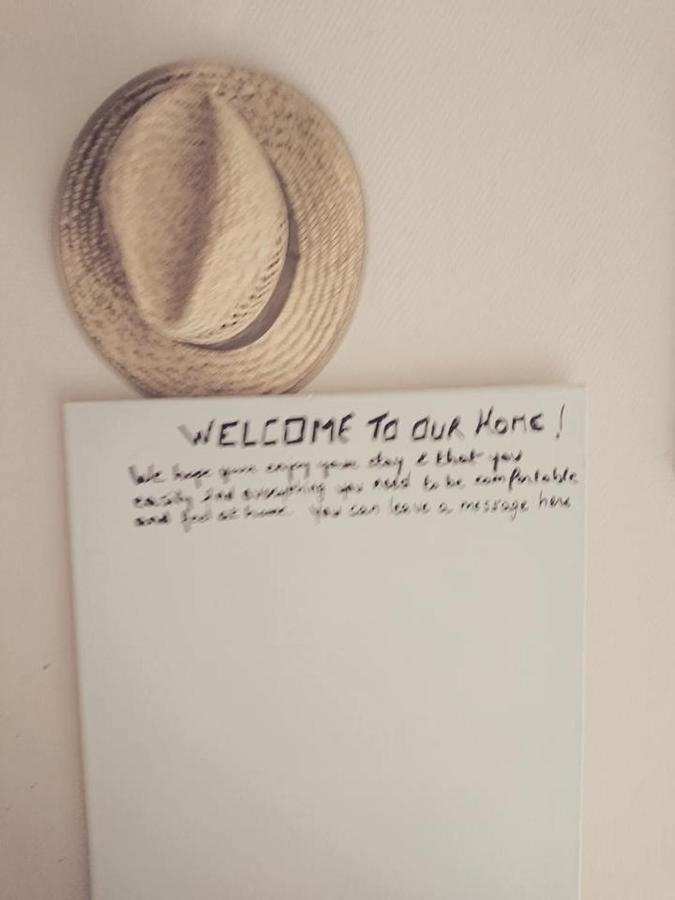 WELCOME TO OUR HOME!
We hope you enjoy your stay & that you
easily find everything you need to be comfortable
and feel at home. You can leave a message here